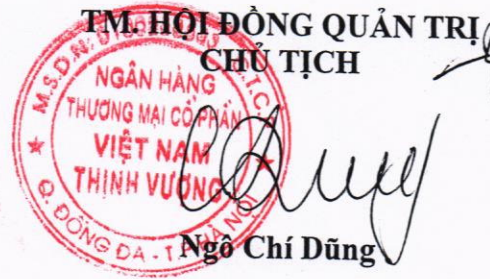 TM. HỘI ĐỒNG QUẢN TRỊ
CHỦ TỊCH
NGÂN HÀNG
THƯƠNG MẠI CỔ PHẦN
VIỆT NAM
THỊNH VƯỢNG
M.S.D.N:
Q. ĐỐNG ĐA - T.P HÀ NỘI
Ngô Chí Dũng